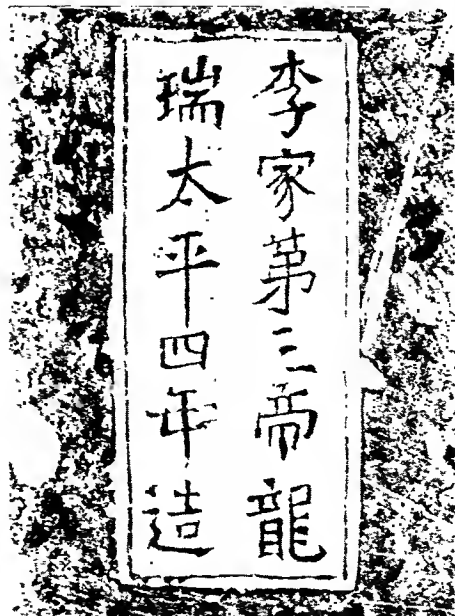 李家第三帝龍
瑞太平四年造